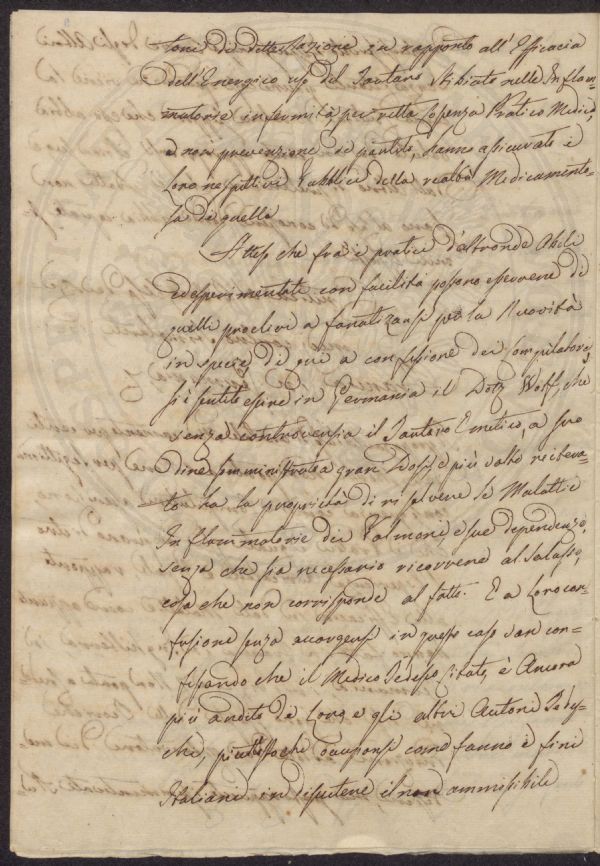 tori di detta Nazione in rapporto all'Efficacia
dell'Energico uso del Tartaro Stibiato nelle Inflam-
matorie infermità per retta Sapenza Pratico Medica,
e non prevenzione di partito, hanno assicurato i
Loro rispettivi Pubblici della realtà Medicamento-
sa di quello
Attesi che fra i pratici d'altronde Abili
ed esperimentati con facilità possono esservene di
quelli proclivi a fanatizzarsi per la Novità
in specie, di qui a confusione dei Compilatori,
si è sentito esire in Germania il Dott. Wolf, che
senza controversia il Tartaro Emetico, a suo
dire somministrato a gran Dosse e più volte reitera-
to ha la proprietà di risolvere le Malattie
Inflammatorie dei Polmoni, e sue dependenze,
senza che sia necessario ricorrere al Salasso,
cosa che non corrisponde al fatto. E a Loro con-
fusione senza accorgersi in questo caso van con-
fessando che il Medico Tedesco Citato, è Ancora
più ardito di Loro, e gli altri Autori Tedes-
chi, piuttosto che occuparsi come fanno i fini
Italiani in discutere il non ammissibile